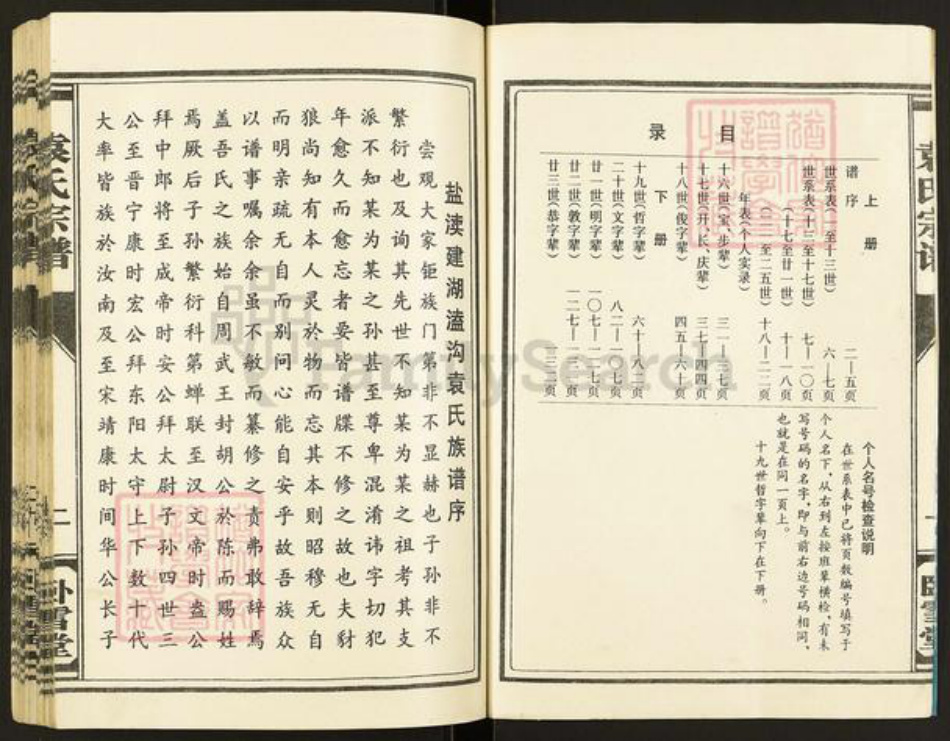 目录
上册
谱序 二—五页
世系表(一至十三世) 六—七页
世系表(十三至十七世) 七—一〇页
(十七至廿一世) 十—一八页
(二一至二五世) 十八—二二页
年表(个人实录)
十六世(宝、步辈) 三一—三七页
十七世(开、长、庆辈) 三七—四四页
十八世(俊字辈) 四五—六十页
下册
十九世(哲字辈) 六十—八二页
二十世(文字辈) 八二—一〇七页
廿一世(明字辈) 一〇七—一二七页
廿二世(教字辈) 一二七—一三二页
廿三世(恭字辈)
个人名号检查说明
在世系表中已将页数编号填写于
个人名下,从右到左按班辈横检,有未
写号码的名字,即与前右边号码相同,
也就是在同一页上。
十九世哲字辈向下在下册。
盐渎建湖溘沟袁氏族谱序
尝观大家钜族门第非不显赫也子孙非不
繁衍也及询其先世不知某为某之祖考其支
派不知某为某之孙甚至尊卑混淆讳字切犯
年愈久而愈忘者要皆谱牒不修之故也夫豺
狼尚知有本人灵於物而忘其本则昭穆无自
而明亲疏无自而别问心能自安乎故吾族众
以谱事嘱余余虽不敏而纂修之责弗敢辞焉
盖吾氏之族始自周武王封胡公於陈而赐姓
焉厥后子孙繁衍科第蝉联至汉文帝时盎公
拜中郎将至成帝时安公拜太尉子孙四世三
公至晋宁康时宏公拜东阳太守上下数十代
大率皆族於汝南及至宋靖康时间华公长子
袁氏宗谱
二
卧雪堂
FamilySearch